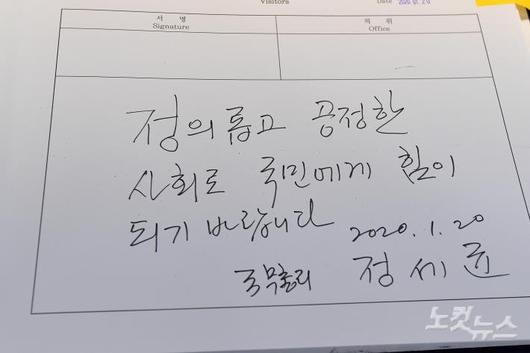 Visitors
Date 2020.
서 명
Signature
직 위
Office
정의롭고 공정한
사회로 국민에게 힘이
되기 바랍니다
2020.1.20
국무총리 정세균
노컷뉴스